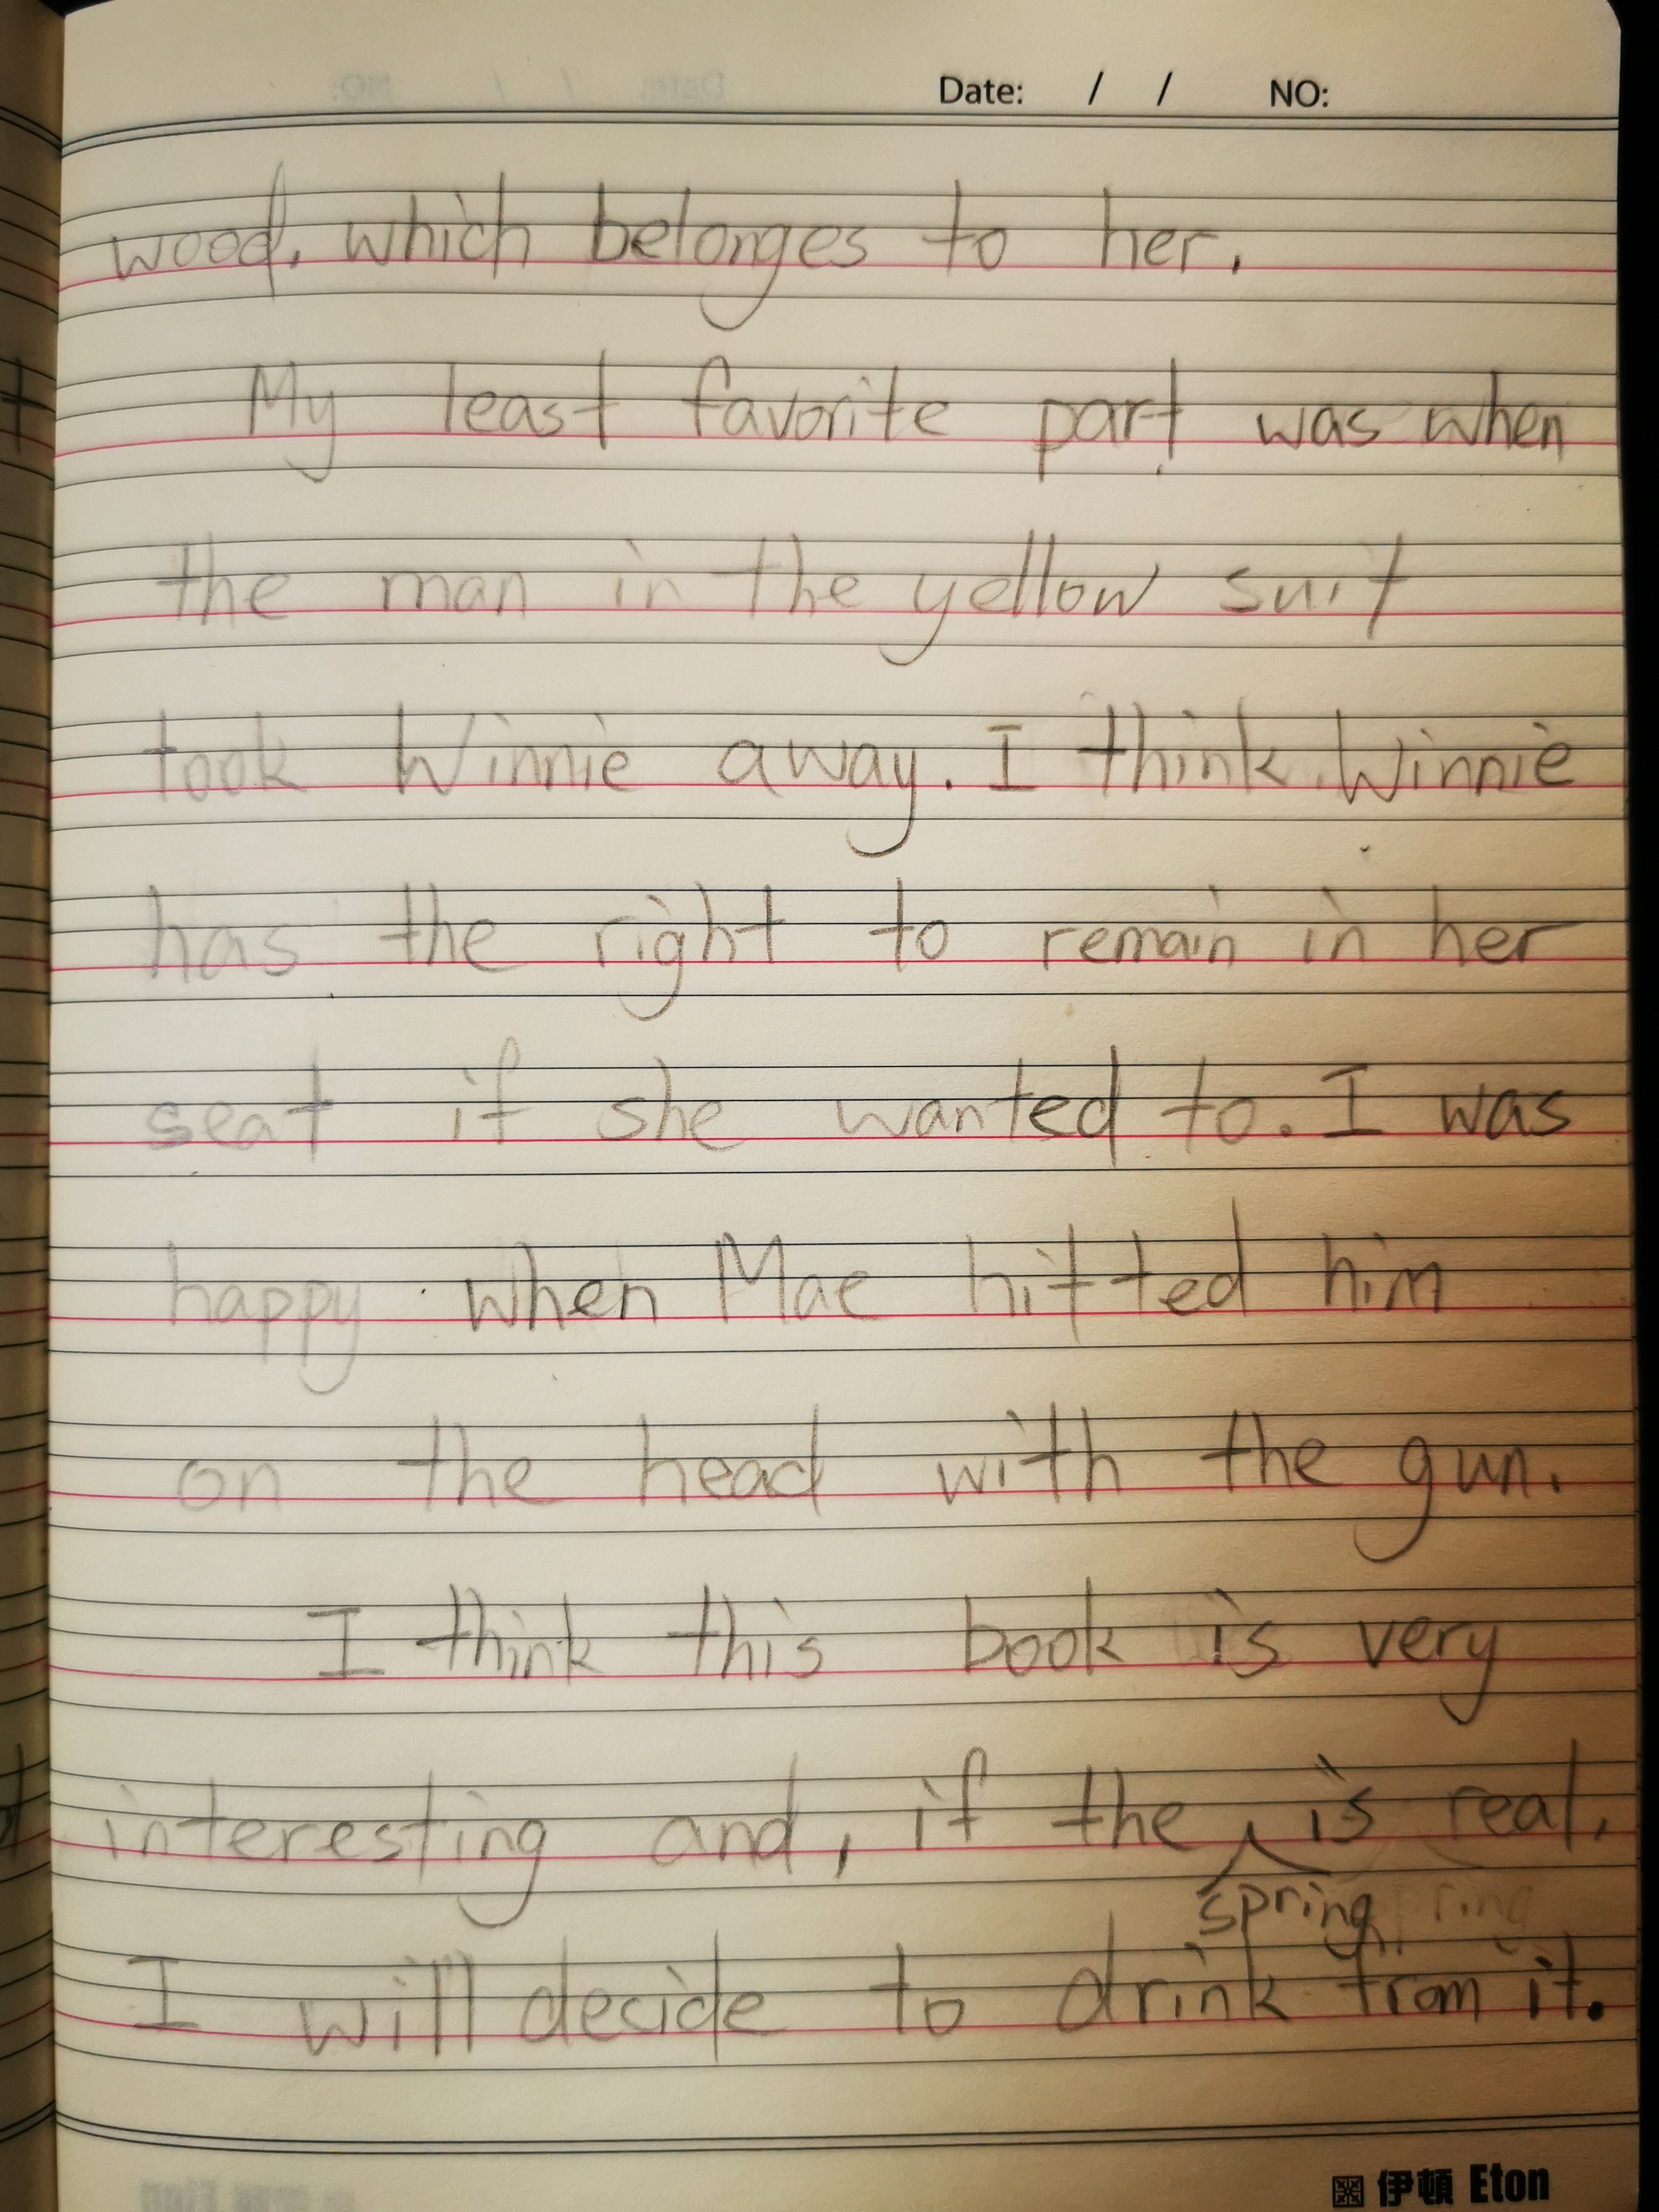 Date: / / NO:
wood, which belonges to her.
My least favorite part was when
the man in the yellow suit
took Winnie away. I think Winnie
has the right to remain in her
seat if she wanted to. I was
happy when Mae hitted him
on the head with the gun.
I think this book is very
interesting and, if the ‸ is real,
spring
I will decide to drink from it.
伊頓 Eton